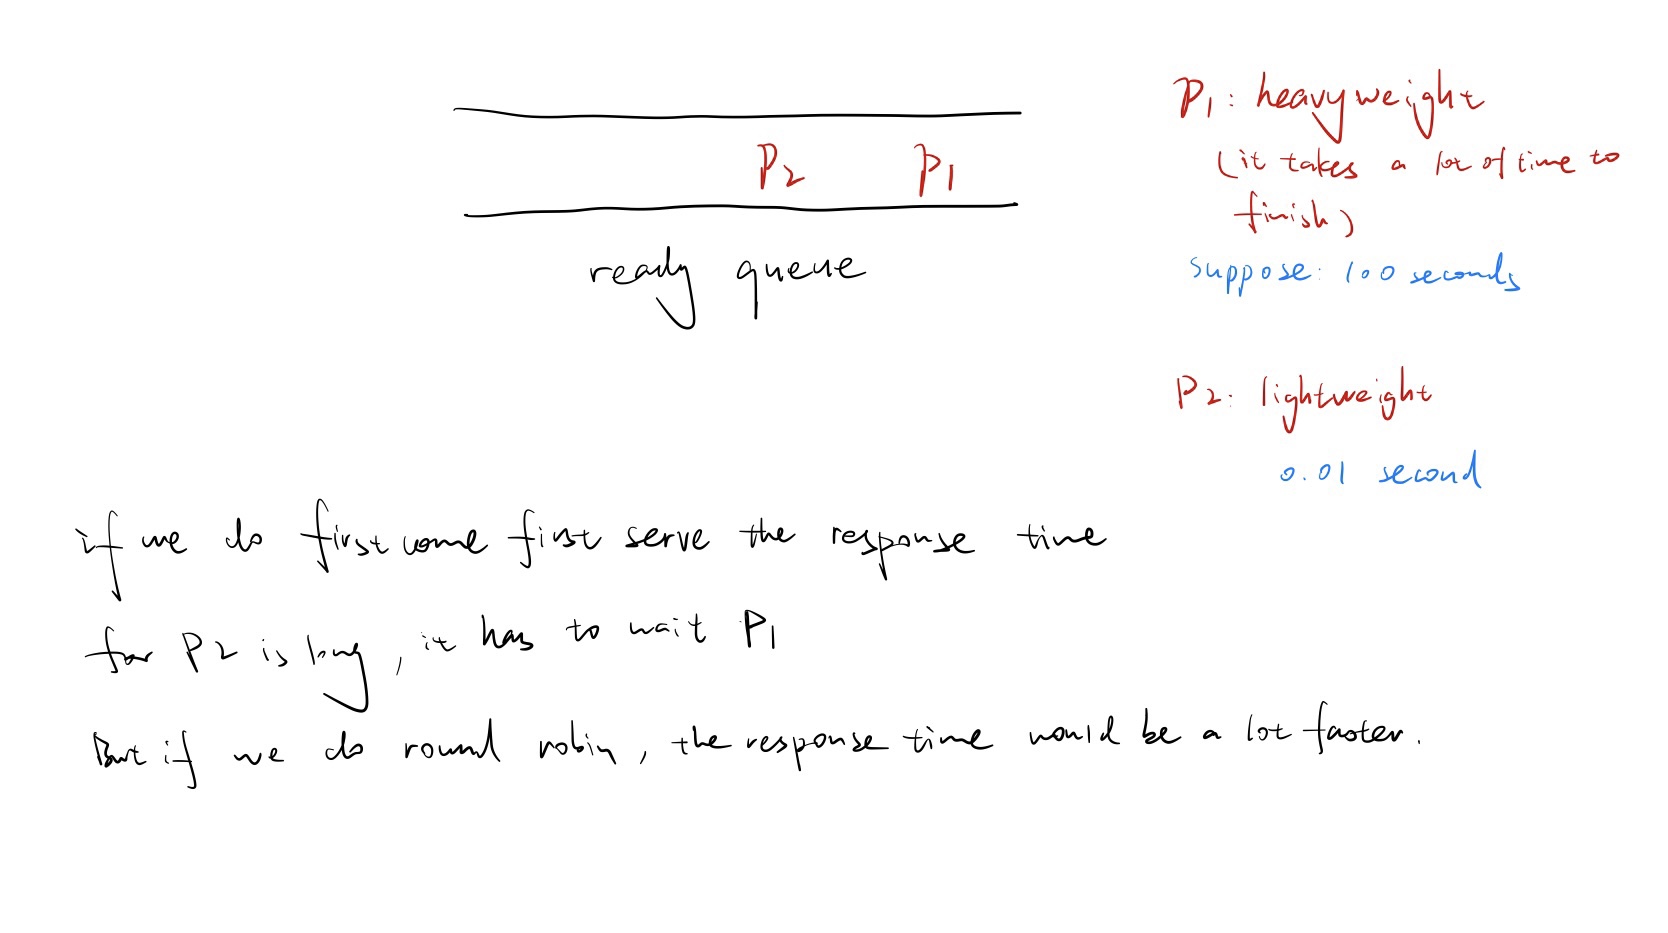 P2 P1
ready queue
P1: heavyweight
(it takes a lot of time to
finish)
suppose: 100 seconds
P2: lightweight
0.01 second
if we do first come first serve the response time
for P2 is long, it has to wait P1
But if we do round robin, the response time would be a lot faster.